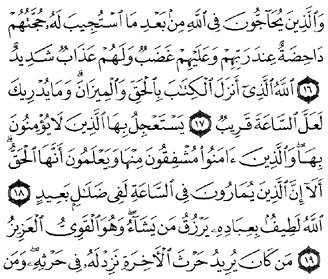 وَالَّذِينَ يُحَاجُّونَ فِي اللَّهِ مِنْ بَعْدِ مَا اسْتُجِيبَ لَهُ حُجَّتُهُمْ
دَاحِضَةٌ عِندَ رَبِّهِمْ وَعَلَيْهِمْ غَضَبٌ وَلَهُمْ عَذَابٌ شَدِيدٌ
١٦ اللَّهُ الَّذِي أَنزَلَ الْكِتَٰبَ بِالْحَقِّ وَالْمِيزَانَ ۗ وَمَا يُدْرِيكَ
لَعَلَّ السَّاعَةَ قَرِيبٌ ١٧ يَسْتَعْجِلُ بِهَا الَّذِينَ لَا يُؤْمِنُونَ
بِهَا ۖ وَالَّذِينَ ءَامَنُوا مُشْفِقُونَ مِنْهَا وَيَعْلَمُونَ أَنَّهَا الْحَقُّ ۗ
أَلَا إِنَّ الَّذِينَ يُمَارُونَ فِي السَّاعَةِ لَفِي ضَلَٰلٍ بَعِيدٍ ١٨
اللَّهُ لَطِيفٌ بِعِبَادِهِ يَرْزُقُ مَن يَشَاءُ ۖ وَهُوَ الْقَوِيُّ الْعَزِيزُ
١٩ مَن كَانَ يُرِيدُ حَرْثَ الْآخِرَةِ نَزِدْ لَهُ فِي حَرْثِهِ ۖ وَمَن